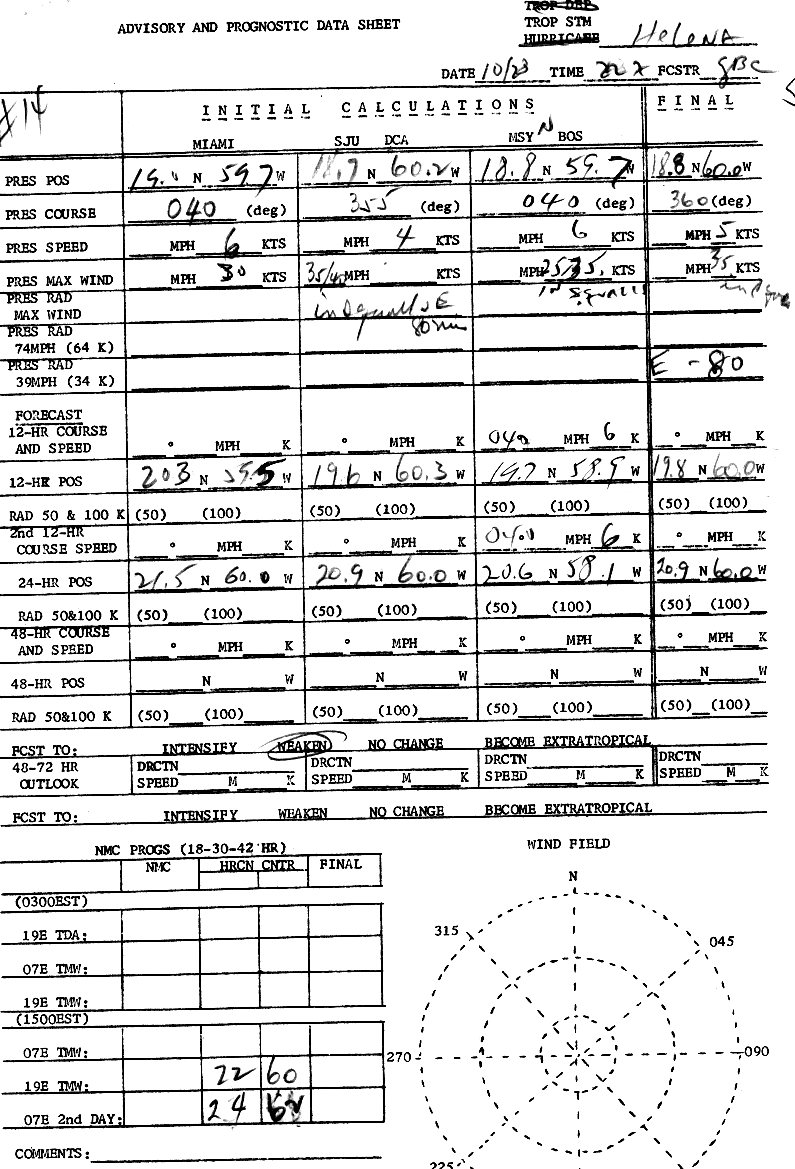 TROP DEP
ADVISORY AND PROGNOSTIC DATA SHEET TROP STM
HURRICANE Helena
DATE 10/23 TIME 22Z FCSTR GBC
#14
INITIAL CALCULATIONS FINAL
MIAMI SJU DCA MSY N BOS
PRES POS N 59.7 W 18.7 N 60.2 W 18.8 N 59.7 W 18.8 N 60.0 W
PRES COURSE 040 (deg) 355 (deg) 040 (deg) 360 (deg)
PRES SPEED MPH 6 KTS MPH 4 KTS MPH 6 KTS MPH 5 KTS
PRES MAX WIND MPH 30 KTS 35/40 MPH KTS MPH KTS MPH 35 KTS
PRES RAD in Squalls
MAX WIND in Squalls E
PRES RAD 80 nm
74MPH (64 K)
PRES RAD E - 80
39MPH (34 K)
FORECAST
12-HR COURSE
AND SPEED ° MPH K ° MPH K 040 MPH 6 K ° MPH K
12-HR POS 203 N 59.5 W 19.6 N 60.3 W 19.7 N 58.9 W 19.8 N 60.0 W
RAD 50 & 100 K (50) (100) (50) (100) (50) (100) (50) (100)
2nd 12-HR
COURSE SPEED ° MPH K ° MPH K 040 MPH 6 K ° MPH K
24-HR POS 21.5 N 60.0 W 20.9 N 60.0 W 20.6 N 58.1 W 20.9 N 60.0 W
RAD 50&100 K (50) (100) (50) (100) (50) (100) (50) (100)
48-HR COURSE
AND SPEED ° MPH K ° MPH K ° MPH K ° MPH K
48-HR POS N W N W N W N W
RAD 50&100 K (50) (100) (50) (100) (50) (100) (50) (100)
FCST TO: INTENSIFY WEAKEN NO CHANGE BECOME EXTRATROPICAL
48-72 HR DRCTN DRCTN DRCTN DRCTN
OUTLOOK SPEED M K SPEED M K SPEED M K SPEED M K
FCST TO: INTENSIFY WEAKEN NO CHANGE BECOME EXTRATROPICAL
NMC PROGS (18-30-42 HR)
NMC HRCN CNTR FINAL
(0300EST)
19E TDA:
07E TMW:
19E TMW:
(1500EST)
07E TMW:
19E TMW: 22 60
07E 2nd DAY: 24
COMMENTS:
WIND FIELD
N
315 045
270 090
225